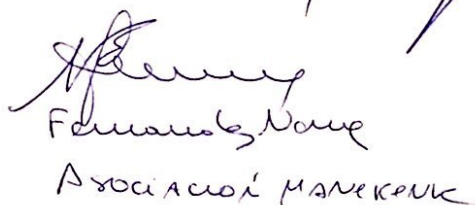 Fernandez Nancy
Asociación MANEKENK